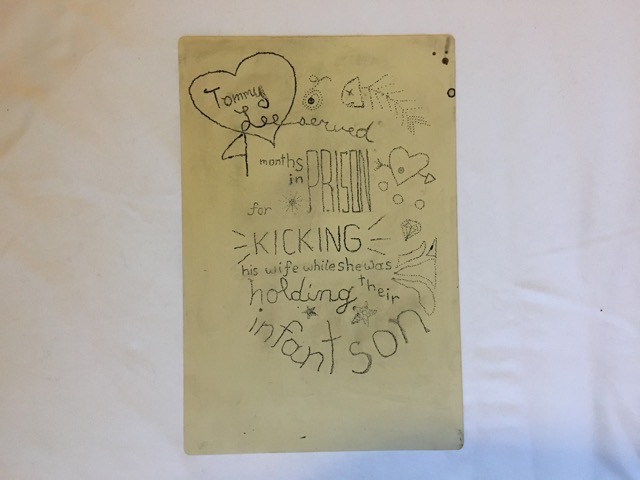 Tommy
Lee served
4 months
in PRISON
for
KICKING
his wife while she was
holding their
infant son